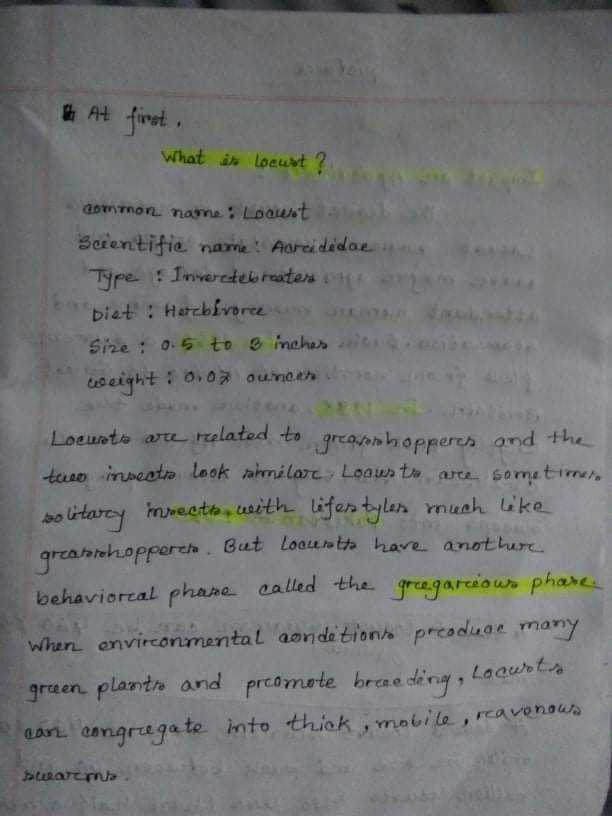 At first.
What is locust?
common name: Locust
Scientific name: Acrididae
Type : Invertebrates
Diet : Herbivore
Size : 0.5 to 3 inches
weight : 0.07 ounces
Locusts are related to grasshoppers and the
two insects look similar. Locusts are sometimes
solitary insects with lifestyles much like
grasshoppers. But locusts have another
behavioral phase called the gregarious phase.
When environmental conditions produce many
green plants and promote breeding, Locusts
can congregate into thick, mobile, ravenous
swarms.